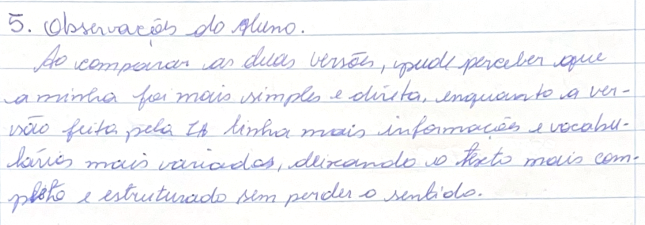 5. Observação do aluno.
Ao comparar as duas versões, pude perceber que
a minha foi mais simples e direta, enquanto a ver-
são feita pela IA tinha mais informações e vocabu-
lários mais variados, deixando o texto mais com-
pleto e estruturado sem perder o sentido.